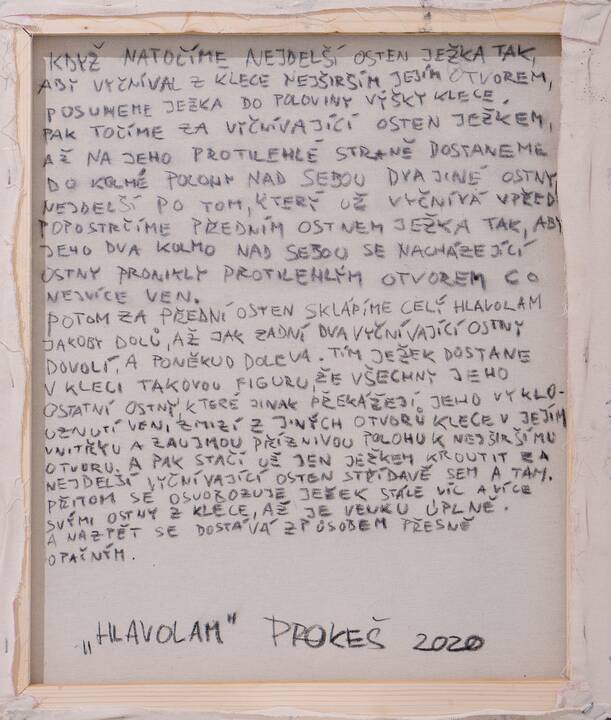 KDYŽ NATOČÍME NEJDELŠÍ OSTEN JEŽKA TAK,
ABY VYČNÍVAL Z KLECE NEJŠIRŠÍM JEJÍM OTVOREM,
POSUNEME JEŽKA DO POLOVINY VÝŠKY KLECE.
PAK TOČÍME ZA VYČNÍVAJÍCÍ OSTEN JEŽKEM,
AŽ NA JEHO PROTILEHLÉ STRANĚ DOSTANEME
DO KOLMÉ POLOHY NAD SEBOU DVA JINÉ OSTNY
NEJDELŠÍ PO TOM, KTERÝ UŽ VYČNÍVÁ VPŘED
POPOSTRČÍME PŘEDNÍM OSTNEM JEŽKA TAK, ABY
JEHO DVA KOLMO NAD SEBOU SE NACHÁZEJÍCÍ
OSTNY PRONIKLY PROTILEHLÝM OTVOREM CO
NEJVÍCE VEN.
POTOM ZA PŘEDNÍ OSTEN SKLÁPÍME CELÍ HLAVOLAM
JAKOBY DOLŮ, AŽ JAK ZADNÍ DVA VYČNÍVAJÍCÍ OSTNY
DOVOLÍ, A PONĚKUD DOLEVA. TÍM JEŽEK DOSTANE
V KLECI TAKOVOU FIGURU, ŽE VŠECHNY JEHO
OSTATNÍ OSTNY, KTERÉ JINAK PŘEKÁŽEJÍ JEHO VYKLO-
UZNUTÍ VEN, ZMIZÍ Z JINÝCH OTVORŮ KLECE V JEJÍM
VNITŘKU A ZAUJMOU PŘÍZNIVOU POLOHU K NEJŠIRŠÍMU
OTVORU. A PAK STAČÍ UŽ JEN JEŽKEM KROUTIT ZA
NEJDELŠÍ VYČNÍVAJÍCÍ OSTEN STŘÍDAVĚ SEM A TAM.
PŘITOM SE OSVOBOZUJE JEŽEK STÁLE VÍC A VÍCE
SVÝMI OSTNY Z KLECE, AŽ JE VENKU ÚPLNĚ.
A NAZPĚT SE DOSTÁVÁ ZPŮSOBEM PŘESNĚ
OPAČNÝM.
„HLAVOLAM" PROKEŠ 2020